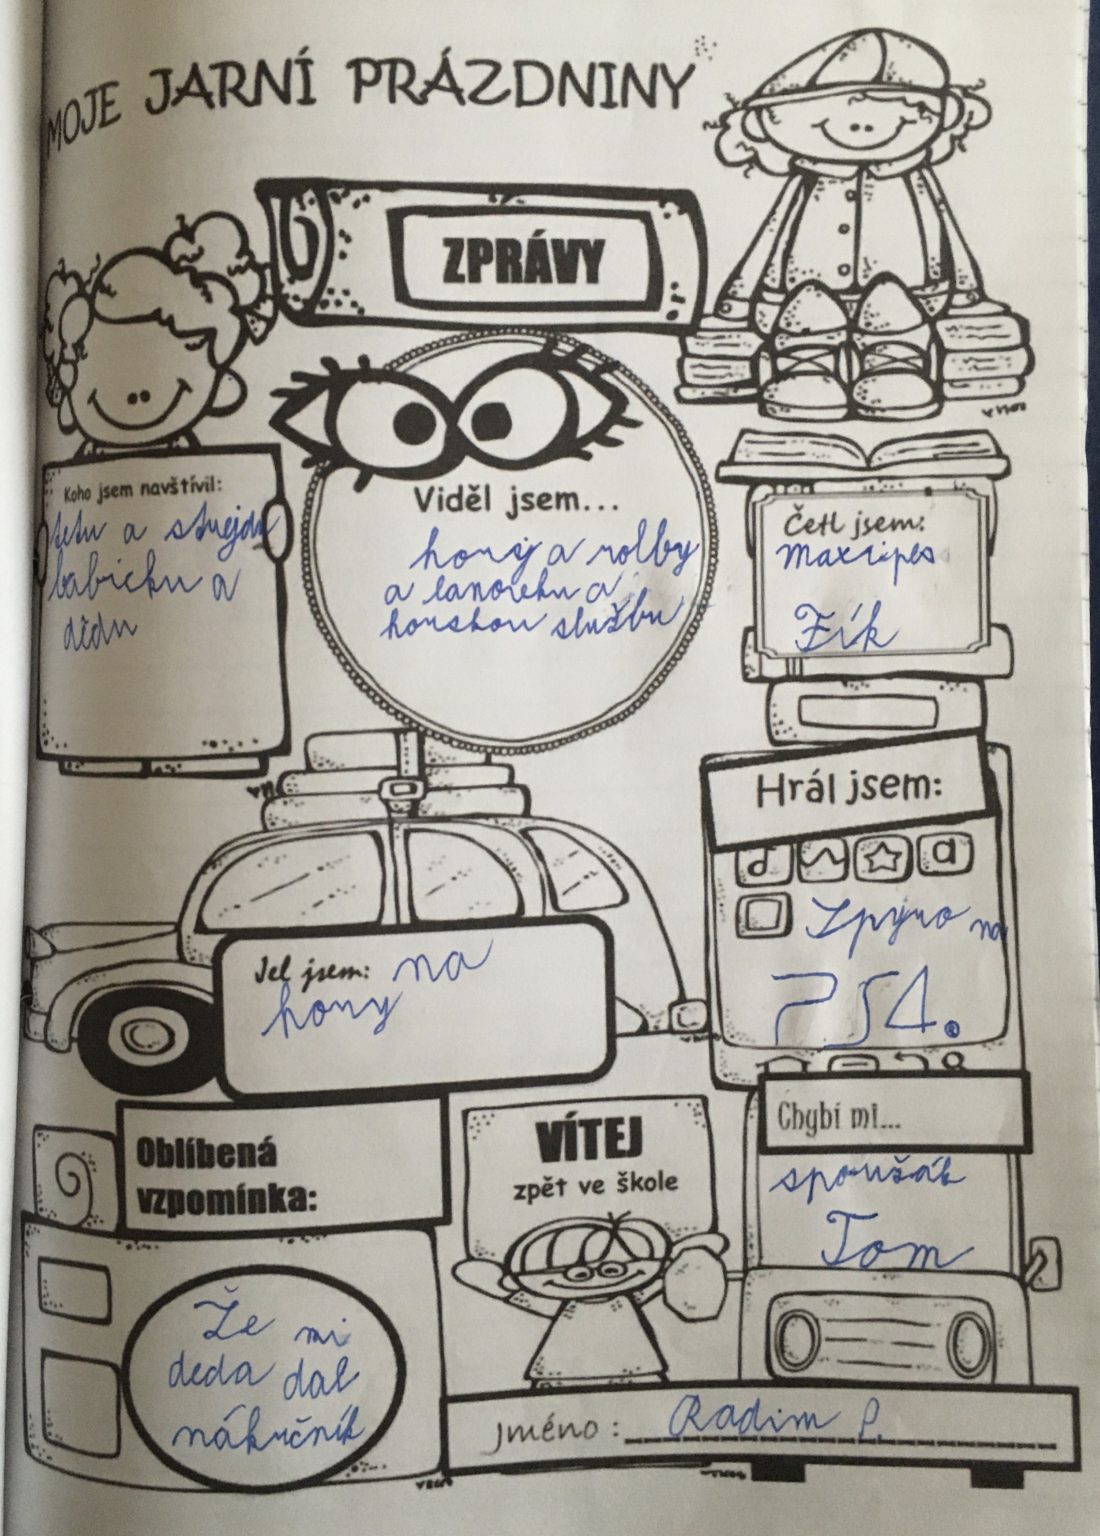 MOJE JARNÍ PRÁZDNINY
ZPRÁVY
Koho jsem navštívil:
tetu a strejdu
babičku a
dědu
Viděl jsem...
hory a rolby
a lanovku a
horskou službu
Četl jsem:
Maxipes
Fík
Hrál jsem:
a
Spyro na
PS4.
Jel jsem: na
hory
Oblíbená
vzpomínka:
Že mi
deda dal
nákrčník
VÍTEJ
zpět ve škole
Chybí mi...
spolužák
Tom
Jméno: Radim P.